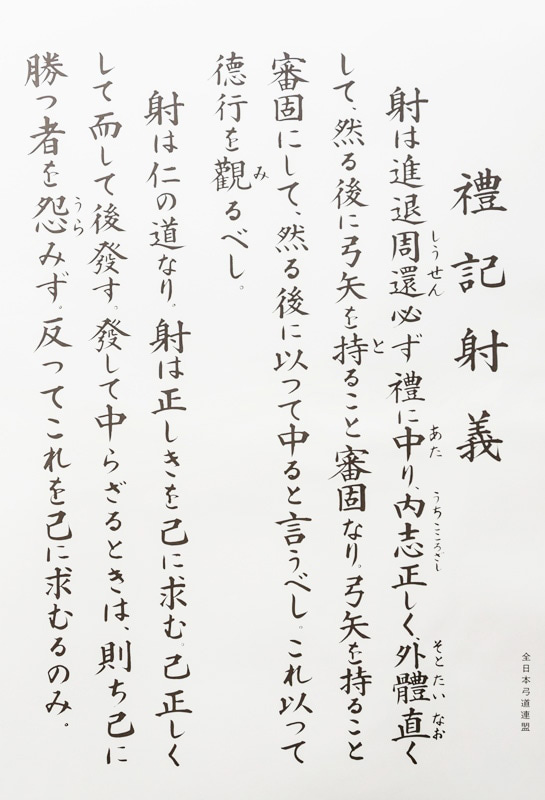 禮記射義
射は進退周還必ず禮に中り、内志正しく、外體直く
して、然る後に弓矢を持ること審固なり。弓矢を持ること
審固にして、然る後に以つて中ると言うべし。これ以つて
德行を觀るべし。
射は仁の道なり。射は正しきを己に求む。己正しく
して而して後發す。發して中らざるときは、則ち己に
勝つ者を怨みず。反つてこれを己に求むるのみ。
しうせん
あた
うちこころざし
そとたいなお
と
み
うら
全日本弓道連盟